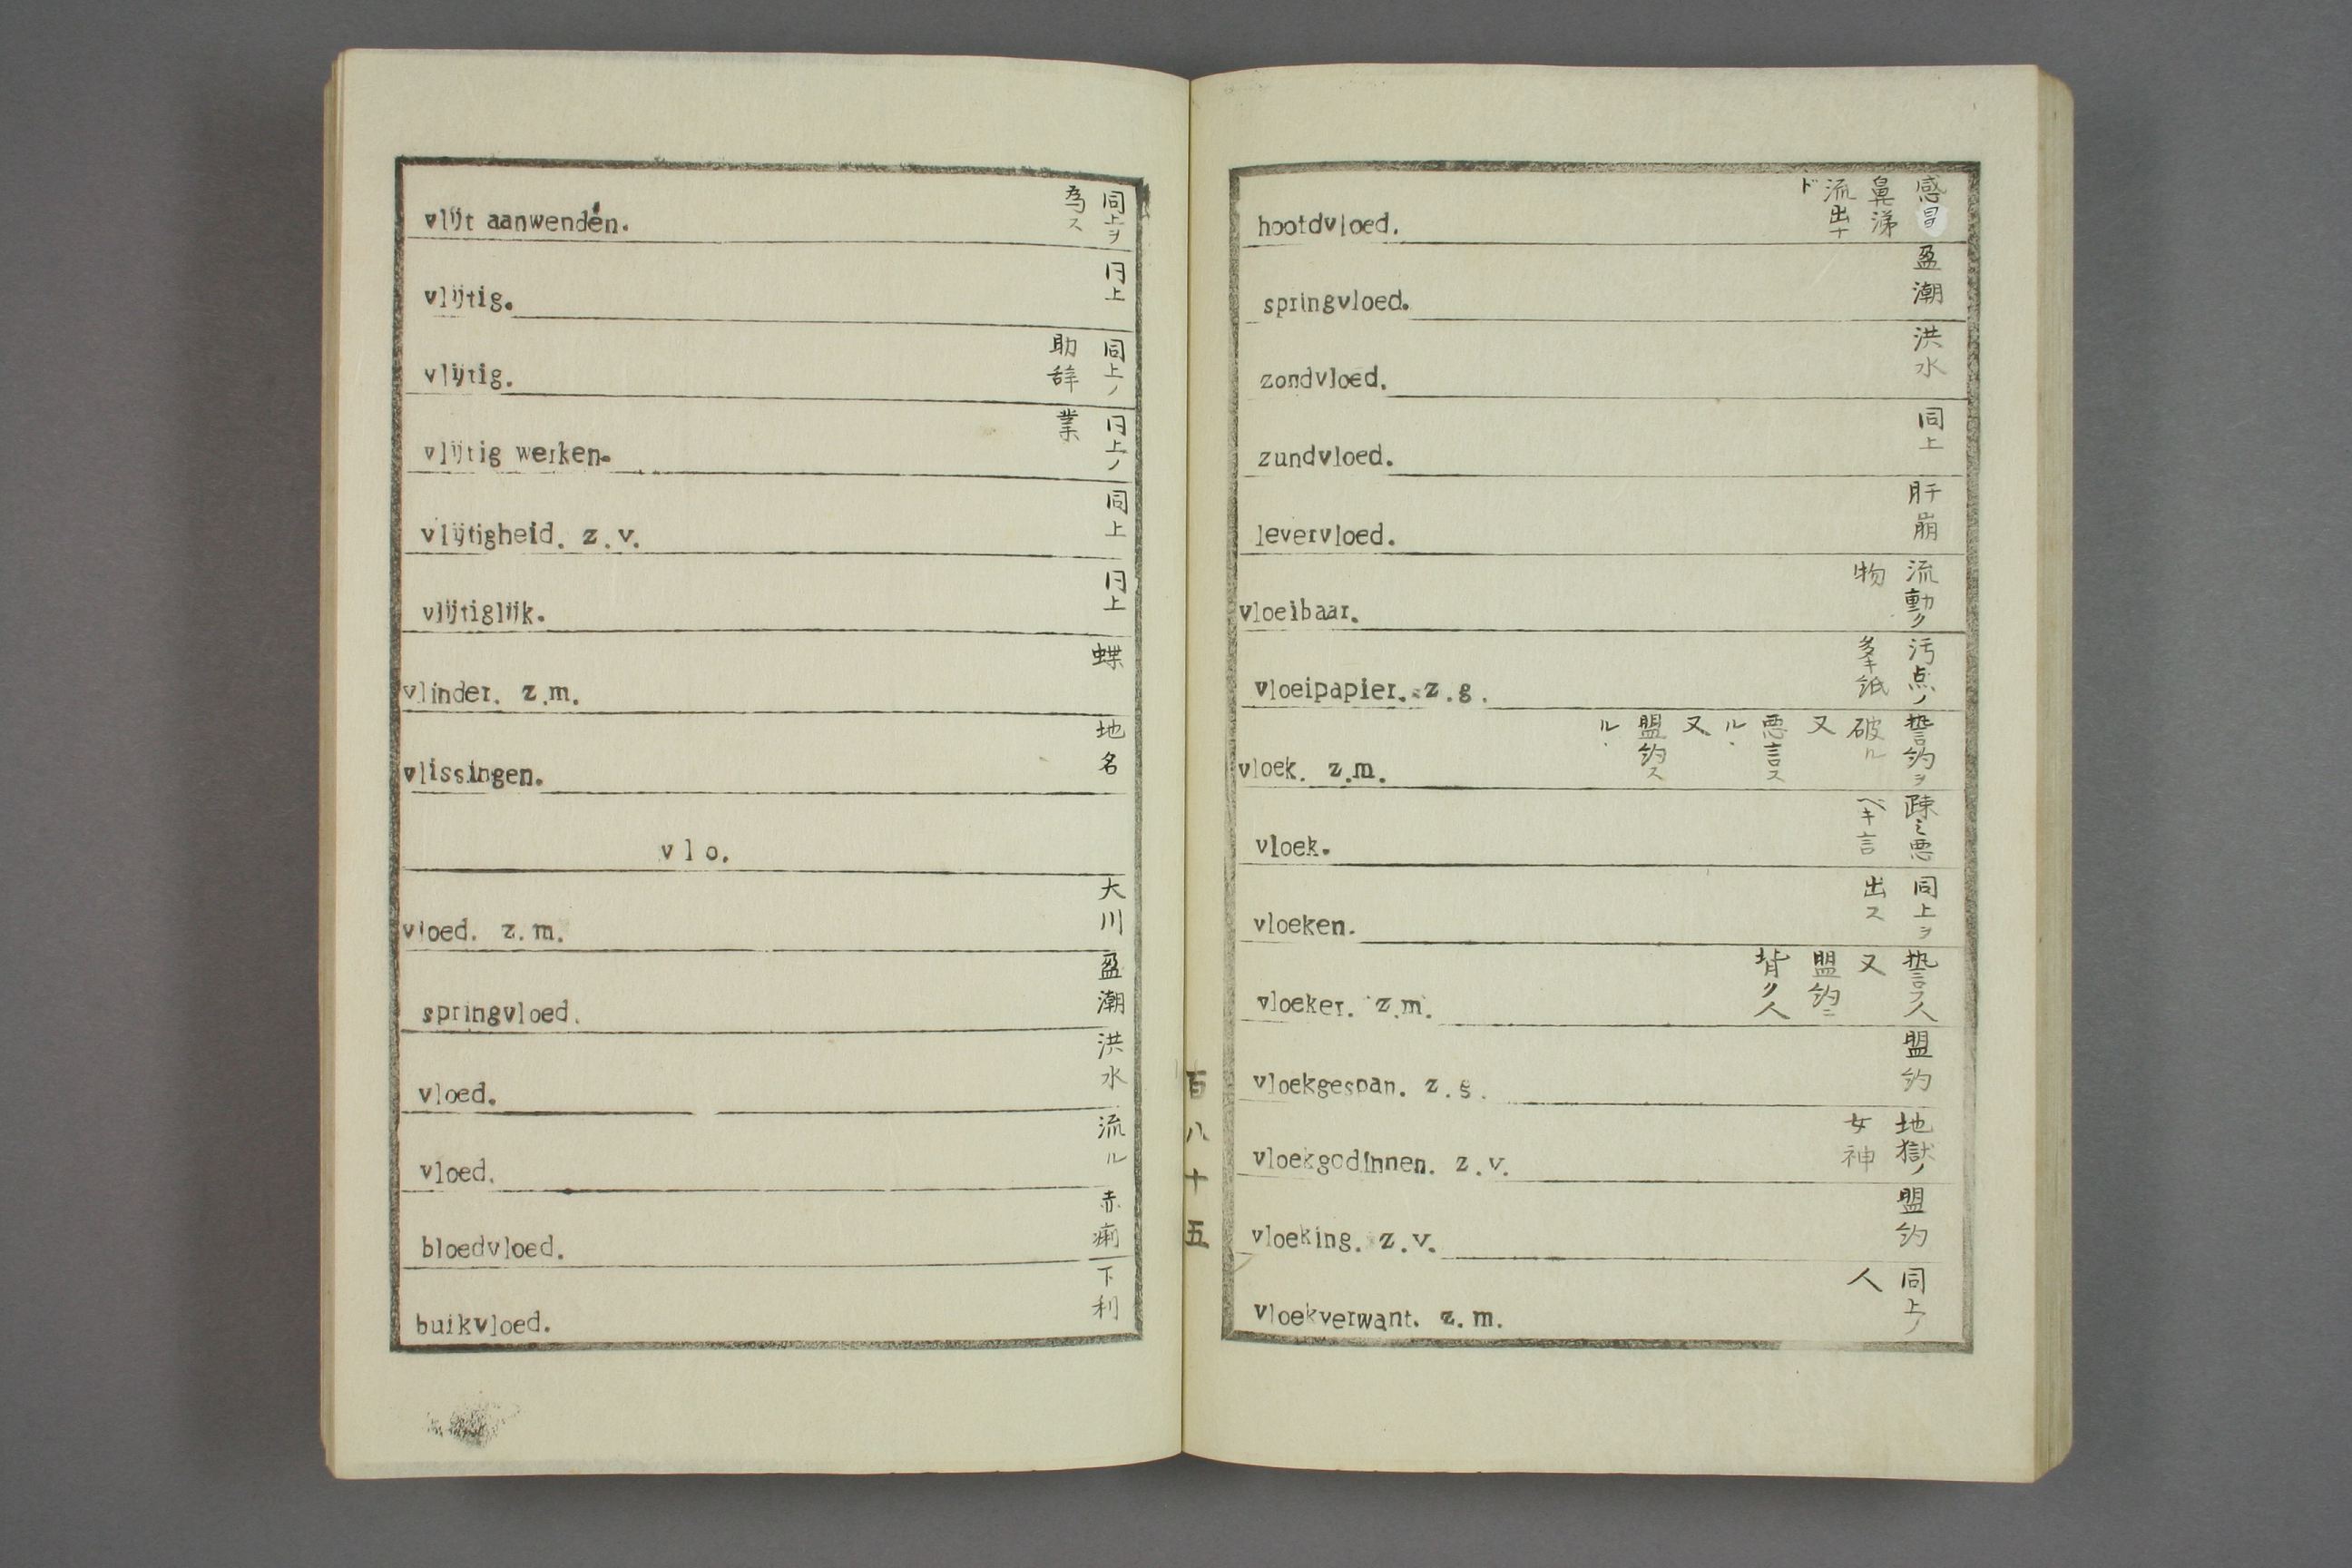 vlijt aanwenden.
同上ヲ
為ス
vlijtig.
同上
vlijtig.
同上ノ
助辞
vlijtig werken.
同上ノ
業
vlijtigheid. z.v.
同上
vlijtiglijk.
同上
vlinder. z.m.
蝶
vlissingen.
地名
vlo.
vloed. z.m.
大川
springvloed.
盈潮
vloed.
洪水
vloed.
流ル
bloedvloed.
赤痢
buikvloed.
下利
百八十五
hootdvloed.
感冒
鼻涕
流出ナ
ド
springvloed.
盈潮
zondvloed.
洪水
zundvloed.
同上
levervloed.
肝崩
vloeibaar.
流動ク
物
vloeipapier. z.g.
汚点ノ
多キ紙
vloek. z.m.
誓約ヲ
破ル
又
悪言ス
ル
又
盟約ス
ル
vloek.
疎ミ悪
ベキ言
vloeken.
同上ヲ
出ス
vloeker. z.m.
誓フ人
又
盟約ニ
背ク人
vloekgespan. z.g.
盟約
vloekgodinnen. z.v.
地獄ノ
女神
vloeking. z.v.
盟約
vloekverwant. z.m.
同上ノ
人